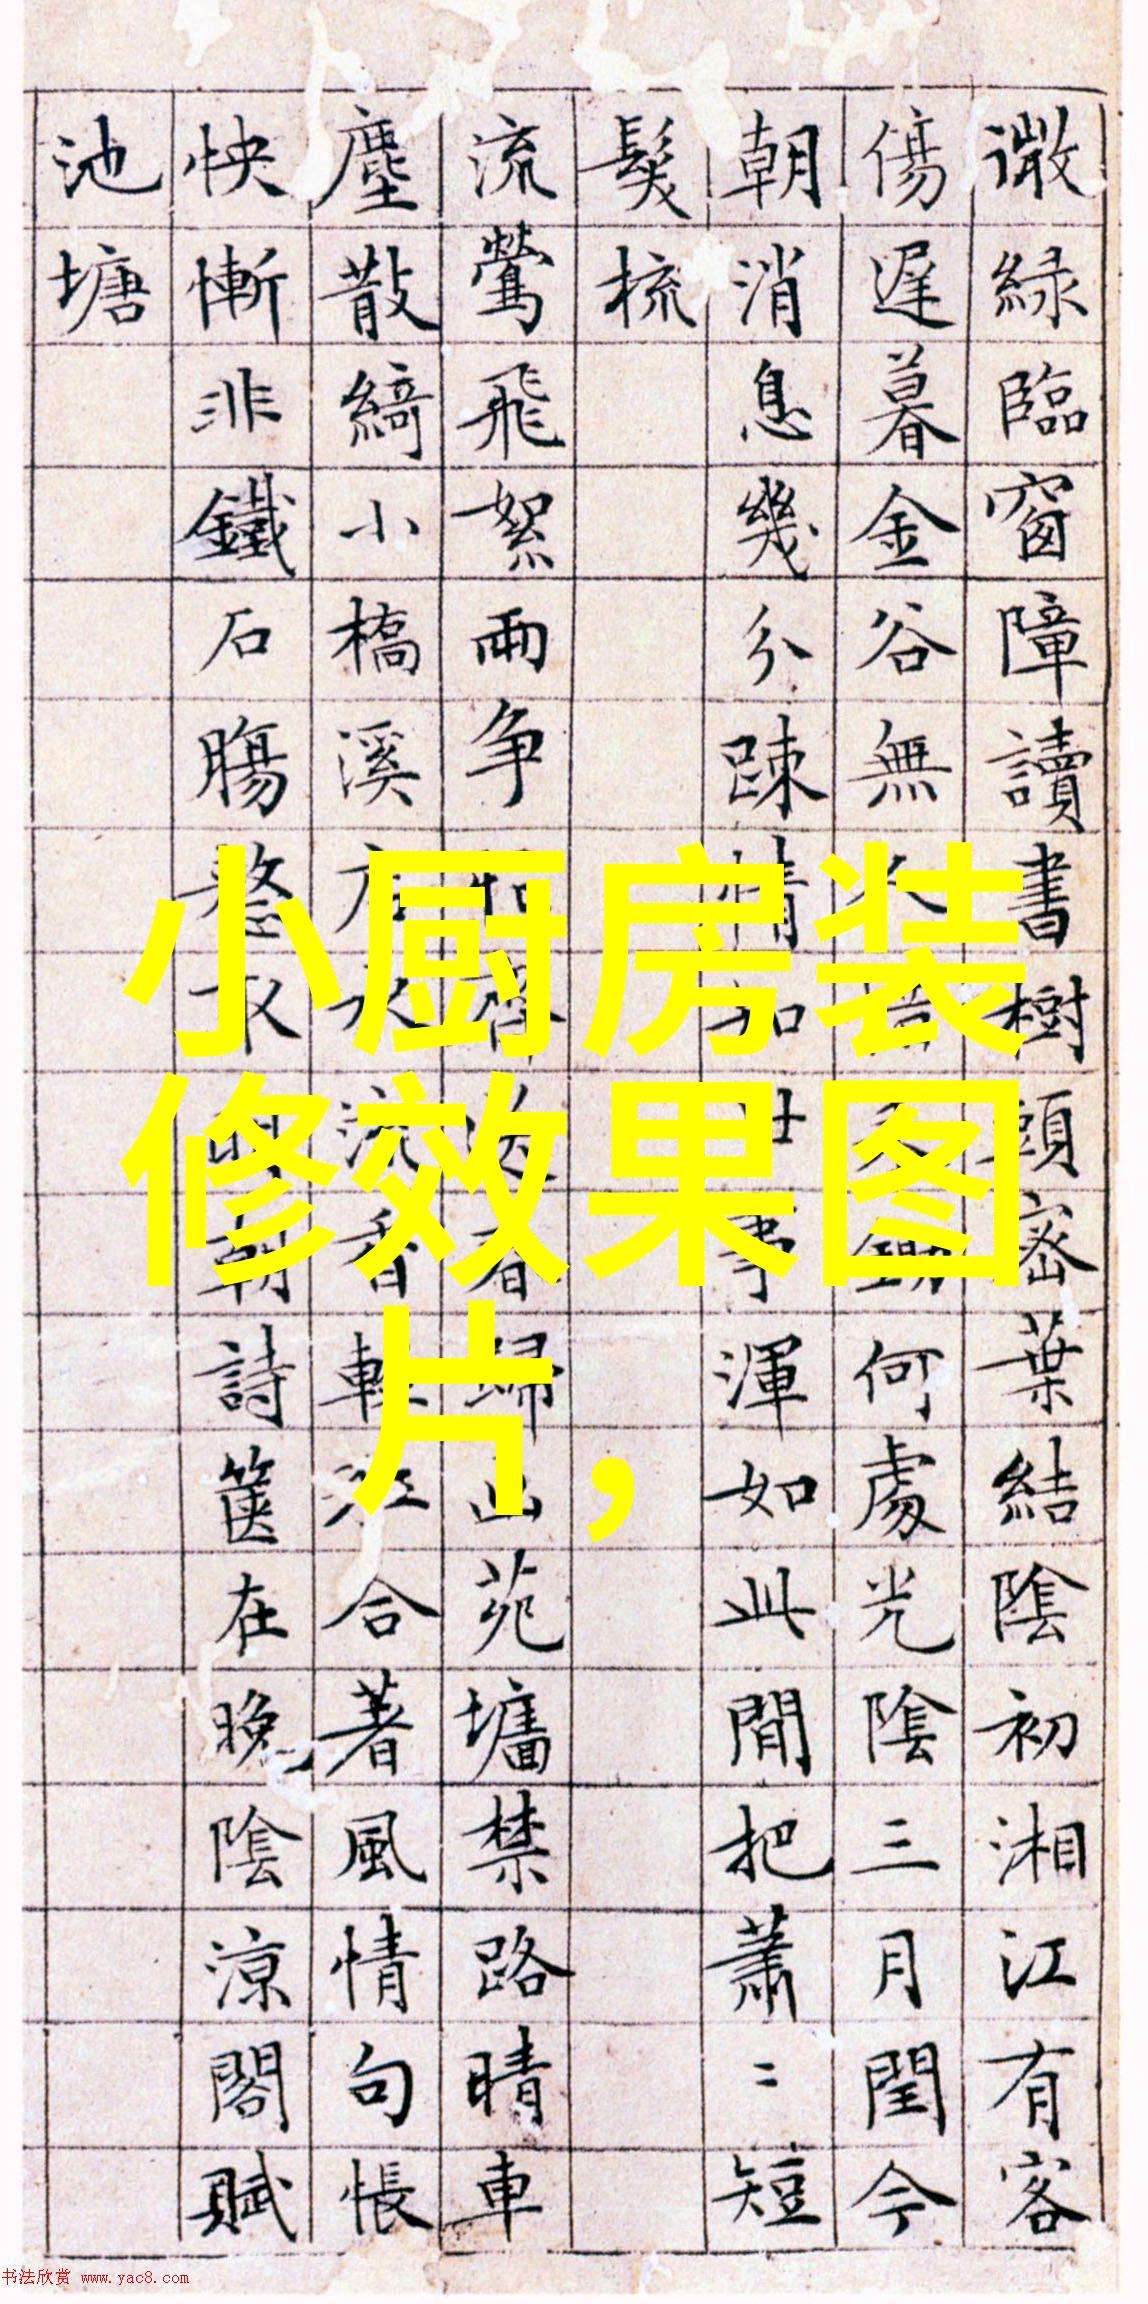 小厨房装
修效果图
片，
微緑臨窗障讀書樹頭密葉結陰初湘江有客
傷遲暮金谷無何處光陰三月閏今
朝消息幾分踈情如事渾如此間把蕭〻短
髮梳
流鶯飛絮兩争春歸苑墻禁路晴車
塵散綺小橋溪流香合著風情句悵
怏慚非鐵石膓朝詩篋在晚陰涼閣賦
池塘
书法欣赏 www.yac8.com